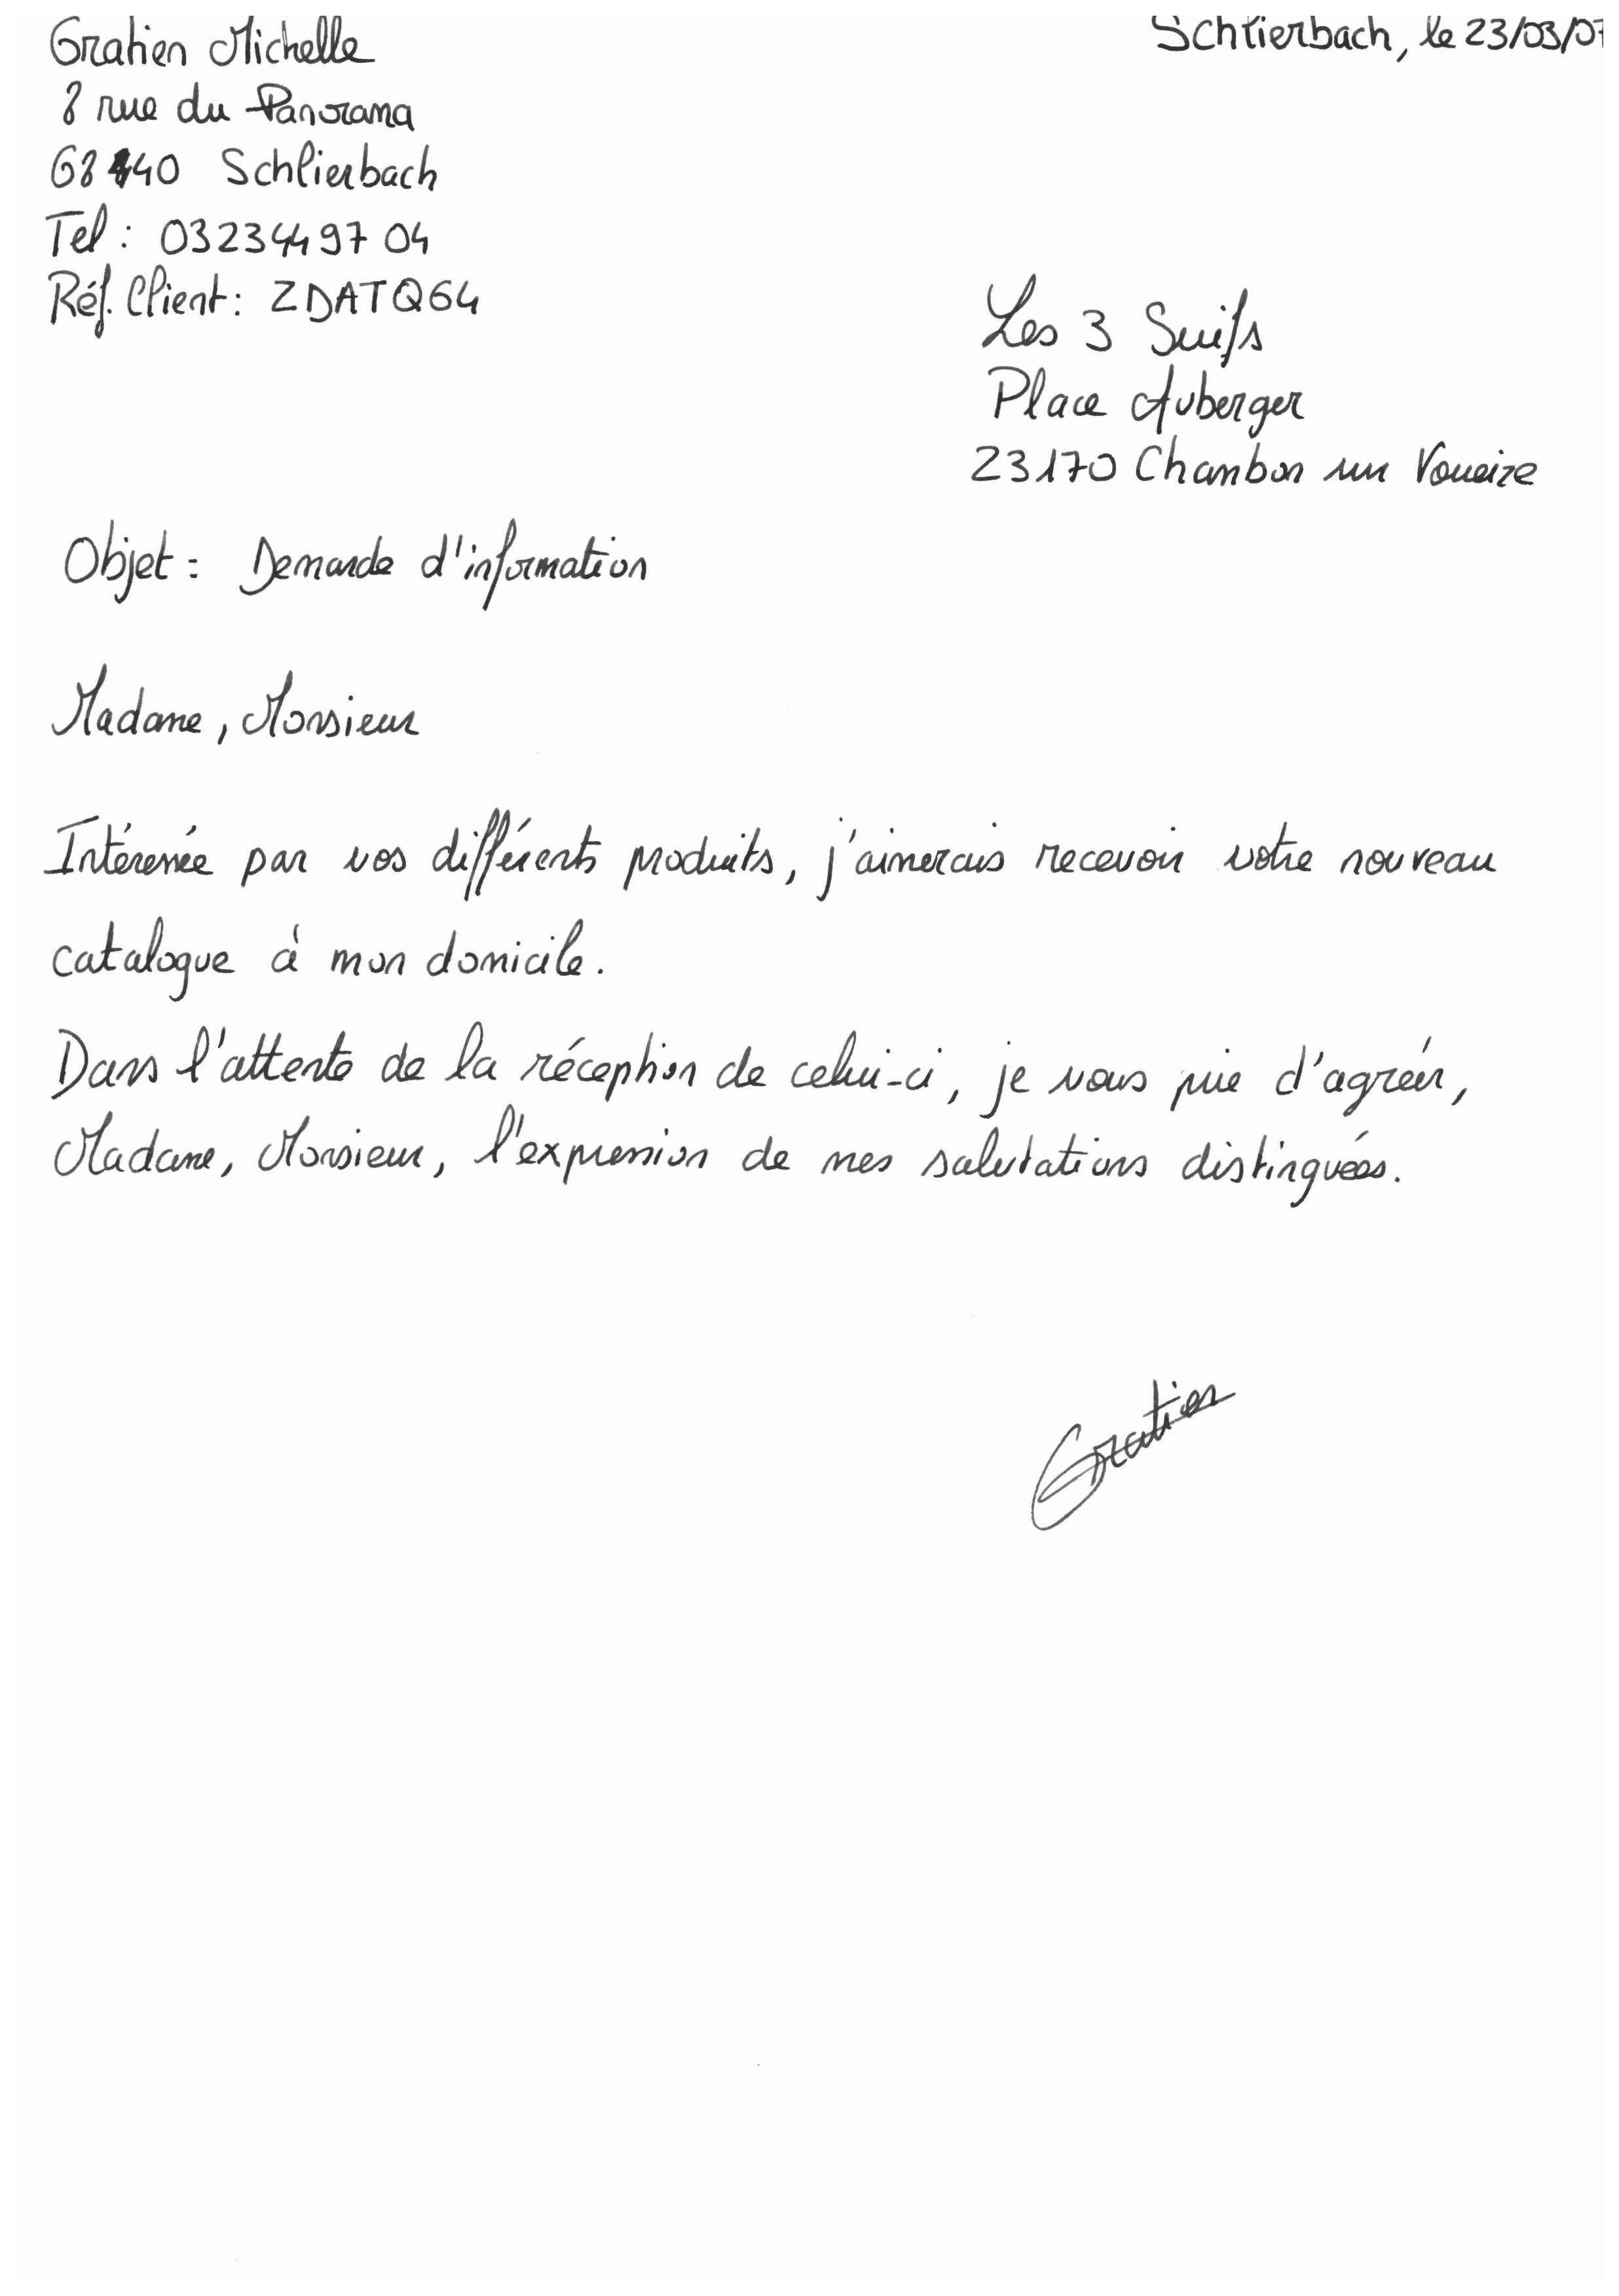 Gratien Michelle
Schlierbach, le 23/03/07
8 rue du Panorama
68440 Schlierbach
Tel : 0323449704
Réf. Client : ZDATQ64
Les 3 Suifs
Place Auberger
23170 Chambon sur Voueize
Objet : Demande d'information
Madame, Monsieur
Intéressée par vos différents produits, j'aimerais recevoir votre nouveau
catalogue à mon domicile.
Dans l'attente de la réception de celui-ci, je vous prie d'agréer,
Madame, Monsieur, l'expression de mes salutations distinguées.
Gratien